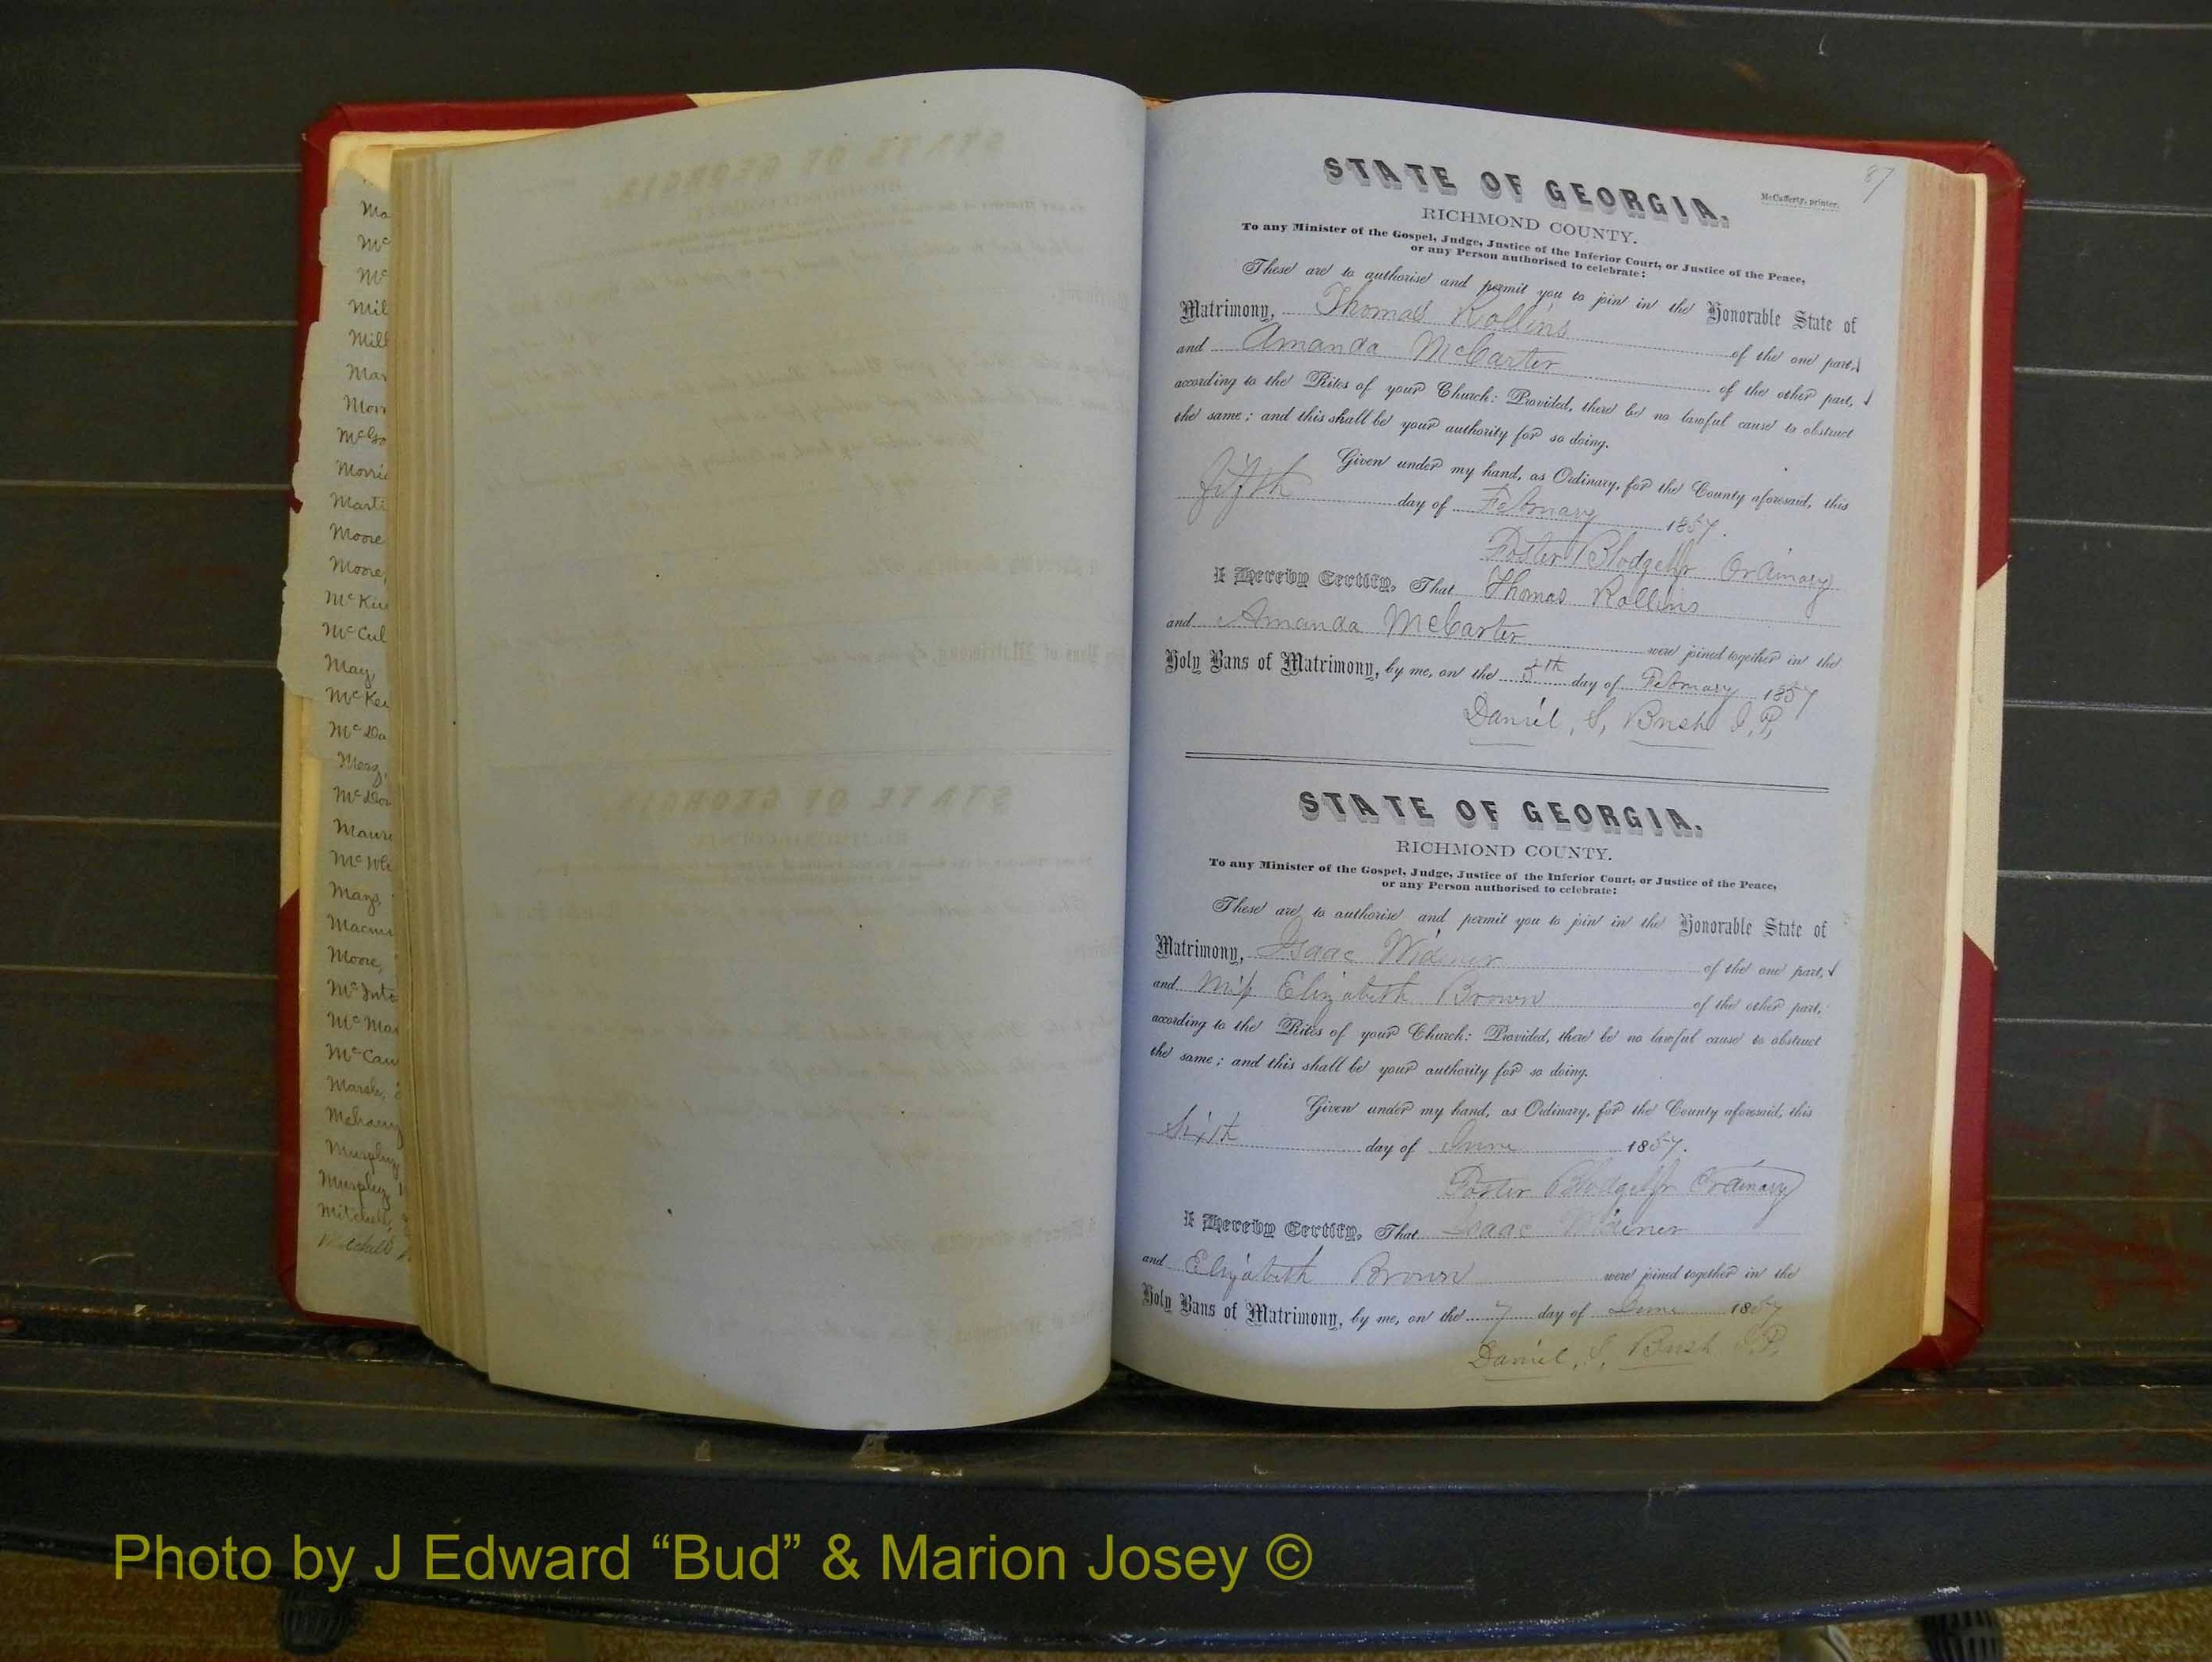 Ma
Mc
Mc
Mil
Mill
Mar
Morr
McGo
Morri
Marti
Moore
Moore,
McKin
McCul
May,
McKe
McDa
McDo
McWh
Mays,
Moore,
McInt
McMa
McCau
Marsh,
Murphy
Murphy,
Mitchell,
Mitchell
87
STATE OF GEORGIA,
McCafferty, printer.
RICHMOND COUNTY.
To any Minister of the Gospel, Judge, Justice of the Inferior Court, or Justice of the Peace,
or any Person authorised to celebrate:
These are to authorise and permit you to join in the Honorable State of
Matrimony, Thomas Rollins of the one part,
and Amanda McCarter of the other part,
according to the Rites of your Church: Provided, there be no lawful cause to obstruct
the same; and this shall be your authority for so doing.
Given under my hand, as Ordinary, for the County aforesaid, this
fifth day of February 1857.
Foster Blodget Jr Ordinary
I Hereby Certify, That Thomas Rollins
and Amanda McCarter were joined together in the
Holy Bans of Matrimony, by me, on the 5th day of February 1857
Daniel, S, Bush J,P,
STATE OF GEORGIA,
RICHMOND COUNTY.
To any Minister of the Gospel, Judge, Justice of the Inferior Court, or Justice of the Peace,
or any Person authorised to celebrate:
These are to authorise and permit you to join in the Honorable State of
Matrimony, Isaac Widener of the one part,
and Miss Elizabeth Brown of the other part,
according to the Rites of your Church: Provided, there be no lawful cause to obstruct
the same; and this shall be your authority for so doing.
Given under my hand, as Ordinary, for the County aforesaid, this
Sixth day of June 1857.
Foster Blodget Jr Ordinary
I Hereby Certify, That Isaac Widener
and Elizabeth Brown were joined together in the
Holy Bans of Matrimony, by me, on the 7 day of June 1857
Daniel, S, Bush J,P,
Photo by J Edward “Bud” & Marion Josey ©